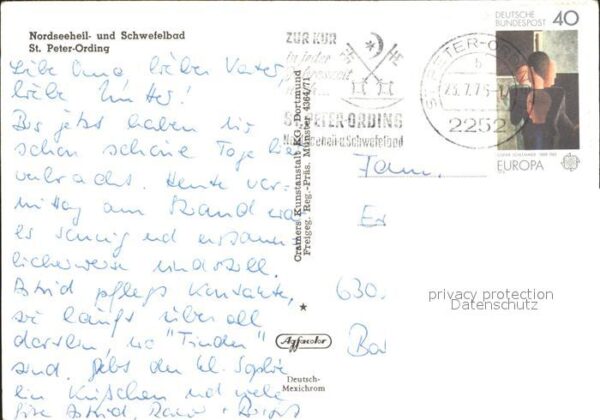 Nordseeheil- und Schwefelbad
St. Peter-Ording
Liebe Oma, lieber Vater,
liebe Mutter!
Bis jetzt haben wir
schon schöne Tage hier
verbracht. Heute vor-
mittag am Strand war
es sonnig und
licherweise windstill.
Astrid pflegt Kontakte,
sie läuft überall
darthin, wo "Kinder"
sind. Gebt der kl. Sophie
ein Küßchen und viele
Astrid,
Cramers Kunstanstalt KG, Dortmund
Freigeg. Reg.-Präs. Münster 4364/71
Agfacolor
Deutsch-
Mexichrom
ZUR KUR
in jeder
ST. PETER-ORDING
Nordseeheil- u. Schwefelbad
ST. PETER-O
b
23.7.75
2252
DEUTSCHE
BUNDESPOST
40
OSKAR SCHLEMMER 1888-1943
EUROPA
CEPT
Fam.
630
privacy protection
Datenschutz